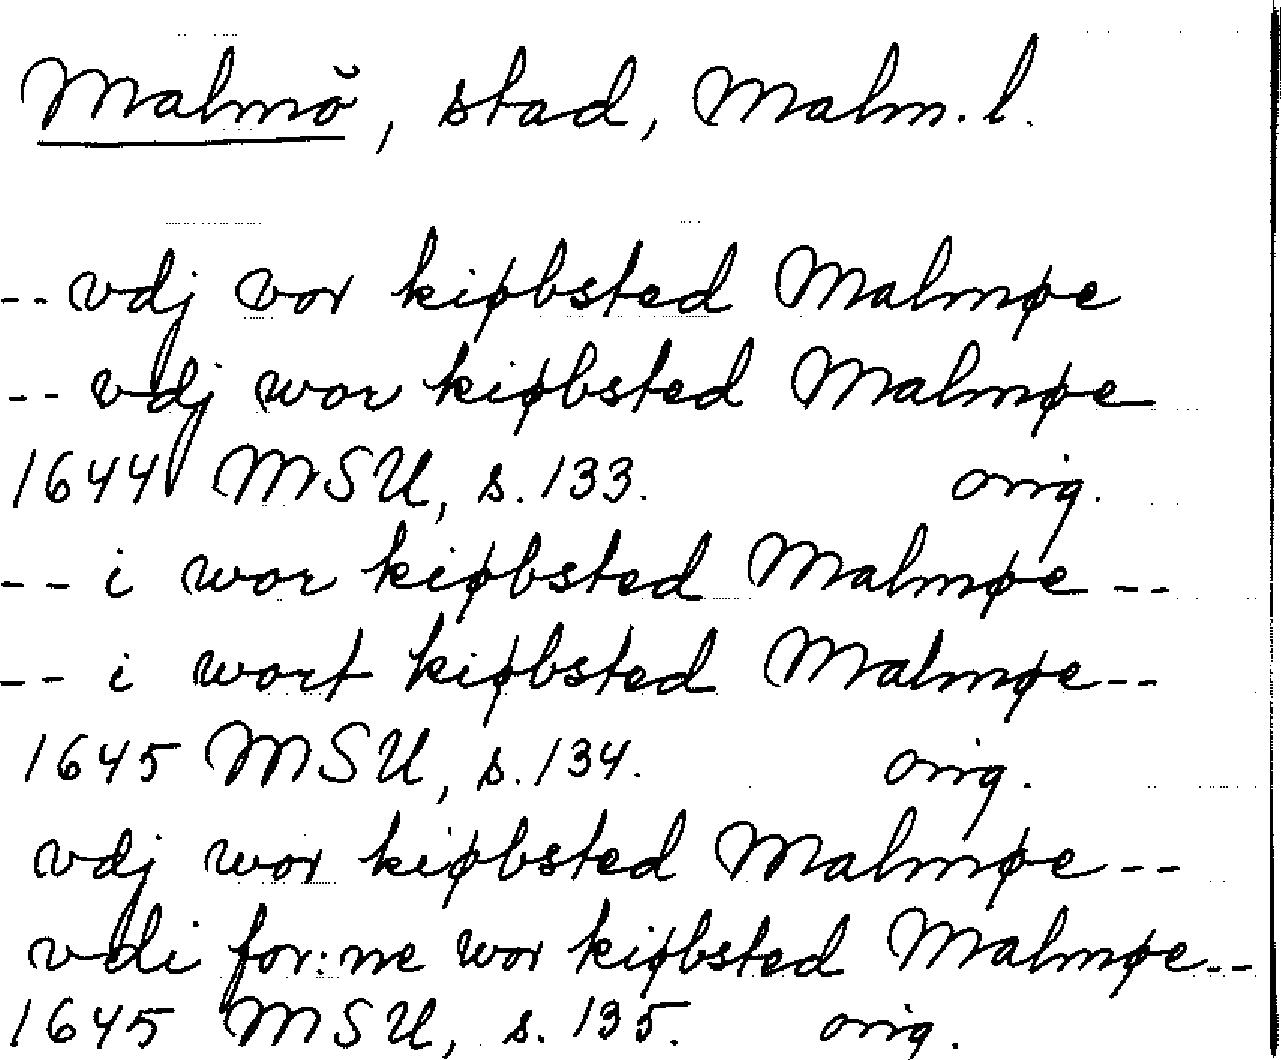 Malmö, stad, Malm. l.
-- vdj vor kiøbsted Malmøe
-- vdj wor kiøbsted Malmøe
1644 MSU, s. 133. orig.
-- i wor kiøbsted Malmøe --
-- i wort kiøbsted Malmøe --
1645 MSU, s. 134. orig.
vdj wor kiøbsted Malmøe --
vdi for:ne wor kiøbsted Malmøe --
1645 MSU, s. 135. orig.